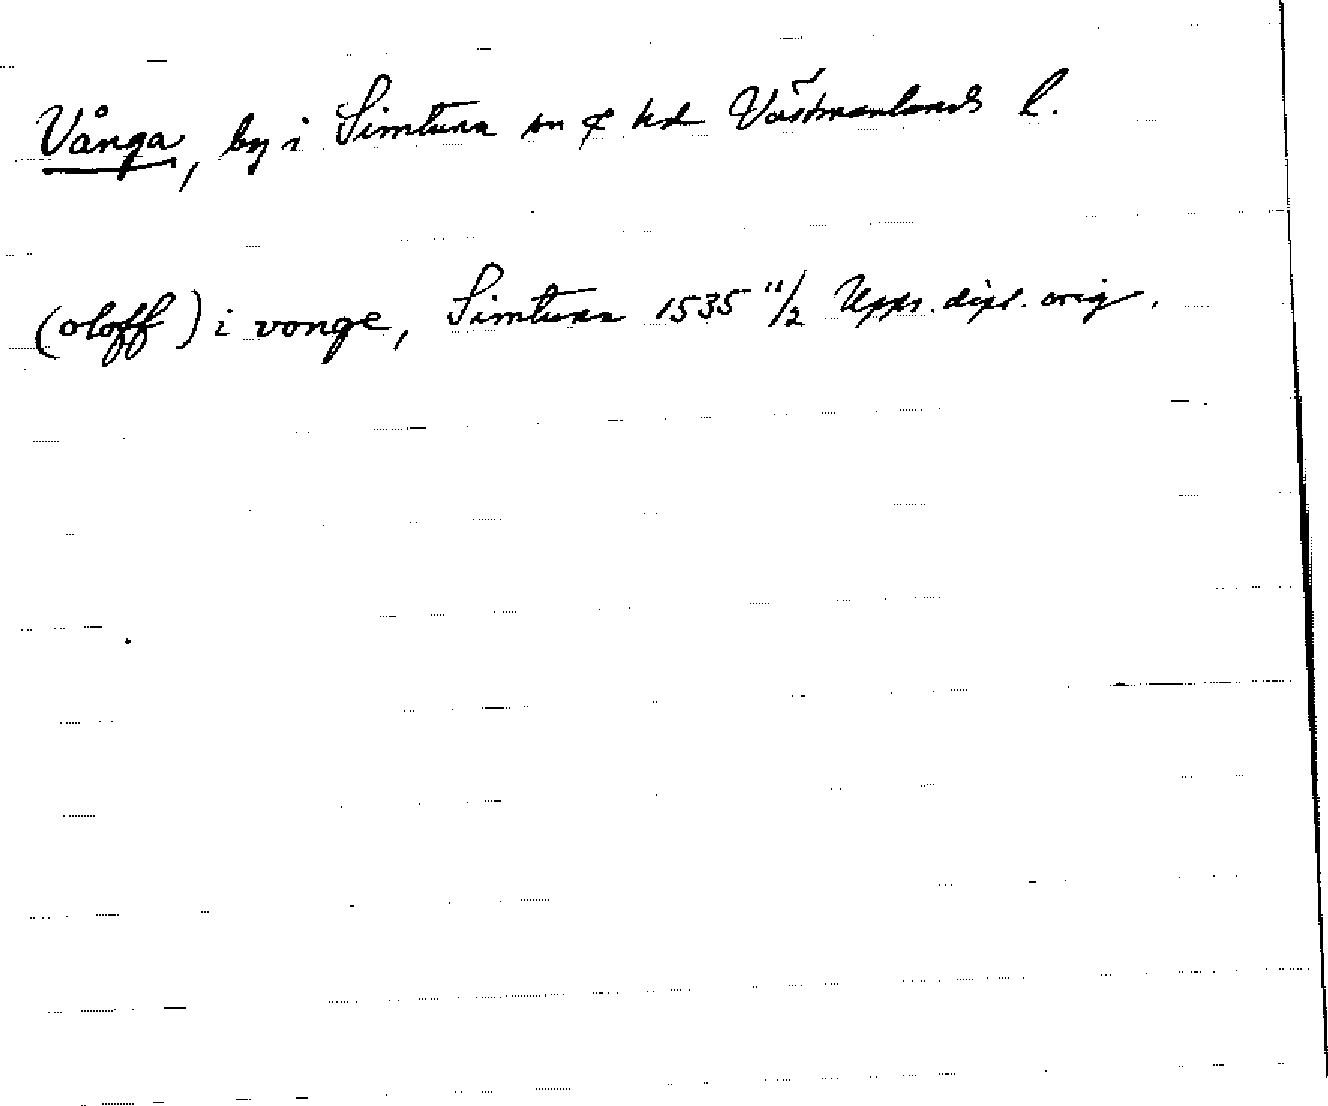 Vånga, by i Simtuna sn & hd Västmanlands l.
(oloff) i vonge, Simtuna 1535 11/2 Upps. dipl. orig.